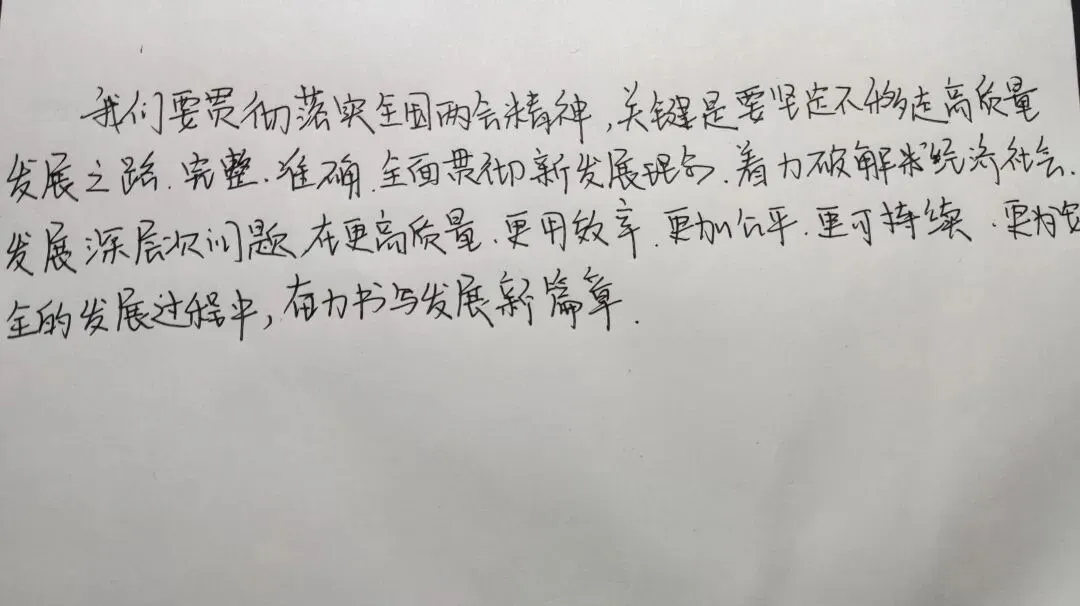 我们要贯彻落实全国两会精神,关键是要坚定不移走高质量
发展之路.完整.准确.全面贯彻新发展理念.着力破解制约经济社会.
发展深层次问题,在更高质量.更有效率.更加公平.更可持续.更为安
全的发展过程中,奋力书写发展新篇章.